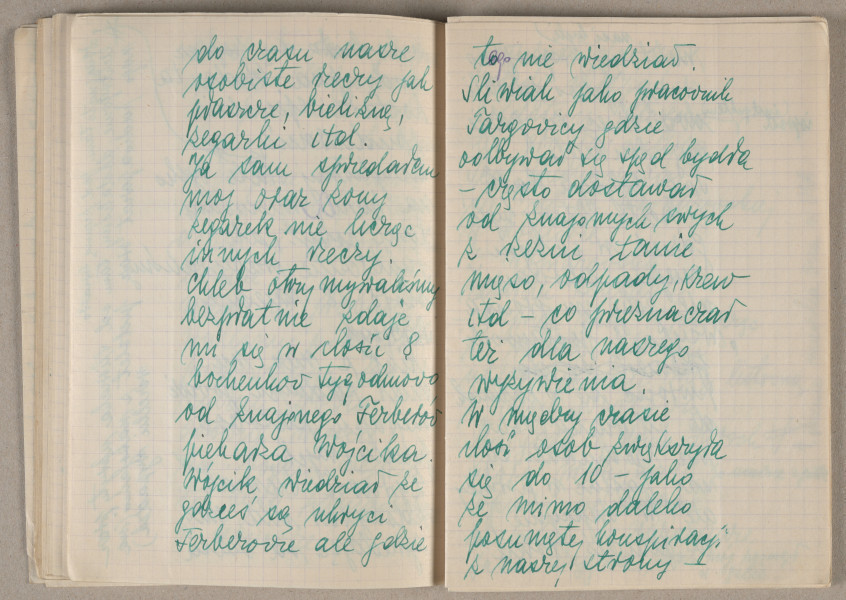 do czasu nasze
osobiste rzeczy jak
płaszcze, bieliznę,
zegarki itd.
Ja sam sprzedałem
moj oraz żony
zegarek nie licząc
innych rzeczy.
Chleb otrzymywaliśmy
bezpłatnie zdaje
mi się w ilości 8
bochenkov tygodniovo
od znajomego Ferberóv
piekarza Wójcika.
Wójcik wiedział że
gdzieś są ukryci
Ferberovie ale gdzie
tego nie wiedział.
Śliwiak jako pracovnik
Targovicy gdzie
odbywał się spęd bydła
– często dostawał
od znajomych swych
z rzeźni tanie
mięso, odpady, krew
itd – co przeznaczał
też dla naszego
wyżywienia.
W między czasie
ilość osób zwiększyła
się do 10 – jako
że mimo daleko
posuniętej konspiracji
z naszej strony –